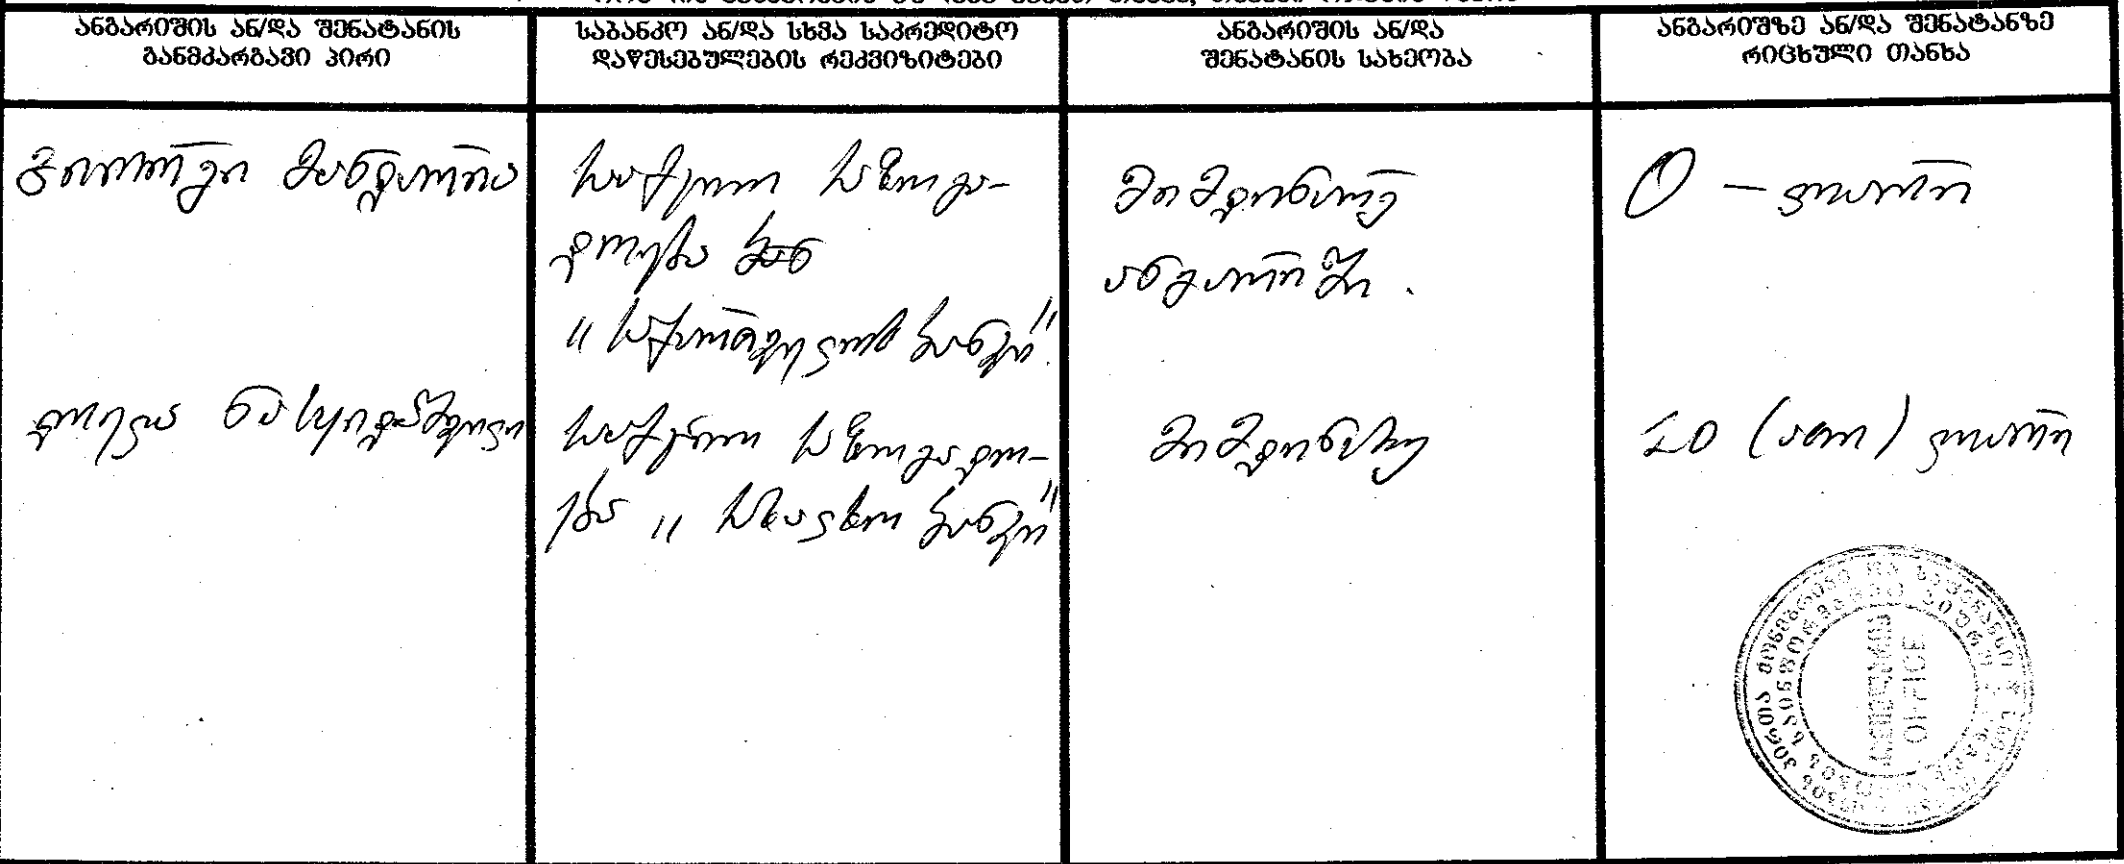 ანგარიშის ან/და შენატანის
განმკარგავი პირი
საბანკო ან/და სხვა საკრედიტო
დაწესებულების რეკვიზიტები
ანგარიშის ან/და
შენატანის სახეობა
ანგარიშზე ან/და შენატანზე
რიცხული თანხა
გიორგი
სააქციო საზოგა-
დოება
"საქართველოს ბანკი"
მიმდინარე
ანგარიში.
0 – ლარი
სააქციო საზოგადო-
ება "სახალხო ბანკი"
მიმდინარე
10 (ათი) ლარი
OFFICE